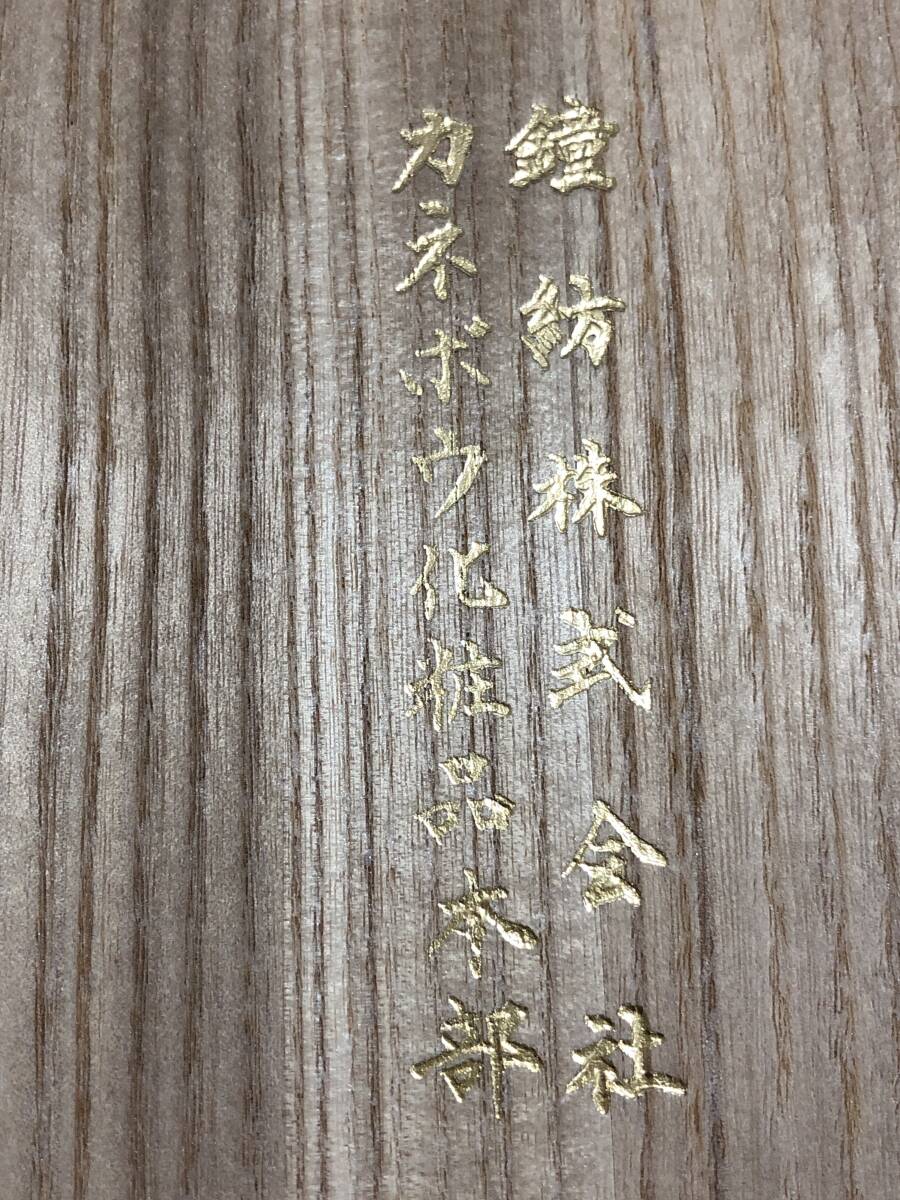 鐘紡株式会社
カネボウ化粧品本部